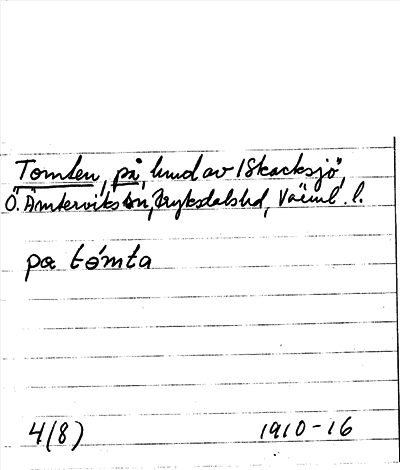 Tomten, på, hmd av 1 Skacksjö,
Ö. Ämterviks sn, Fryksdals hd, Värml. l.
pα tómta
4(8) 1910-16